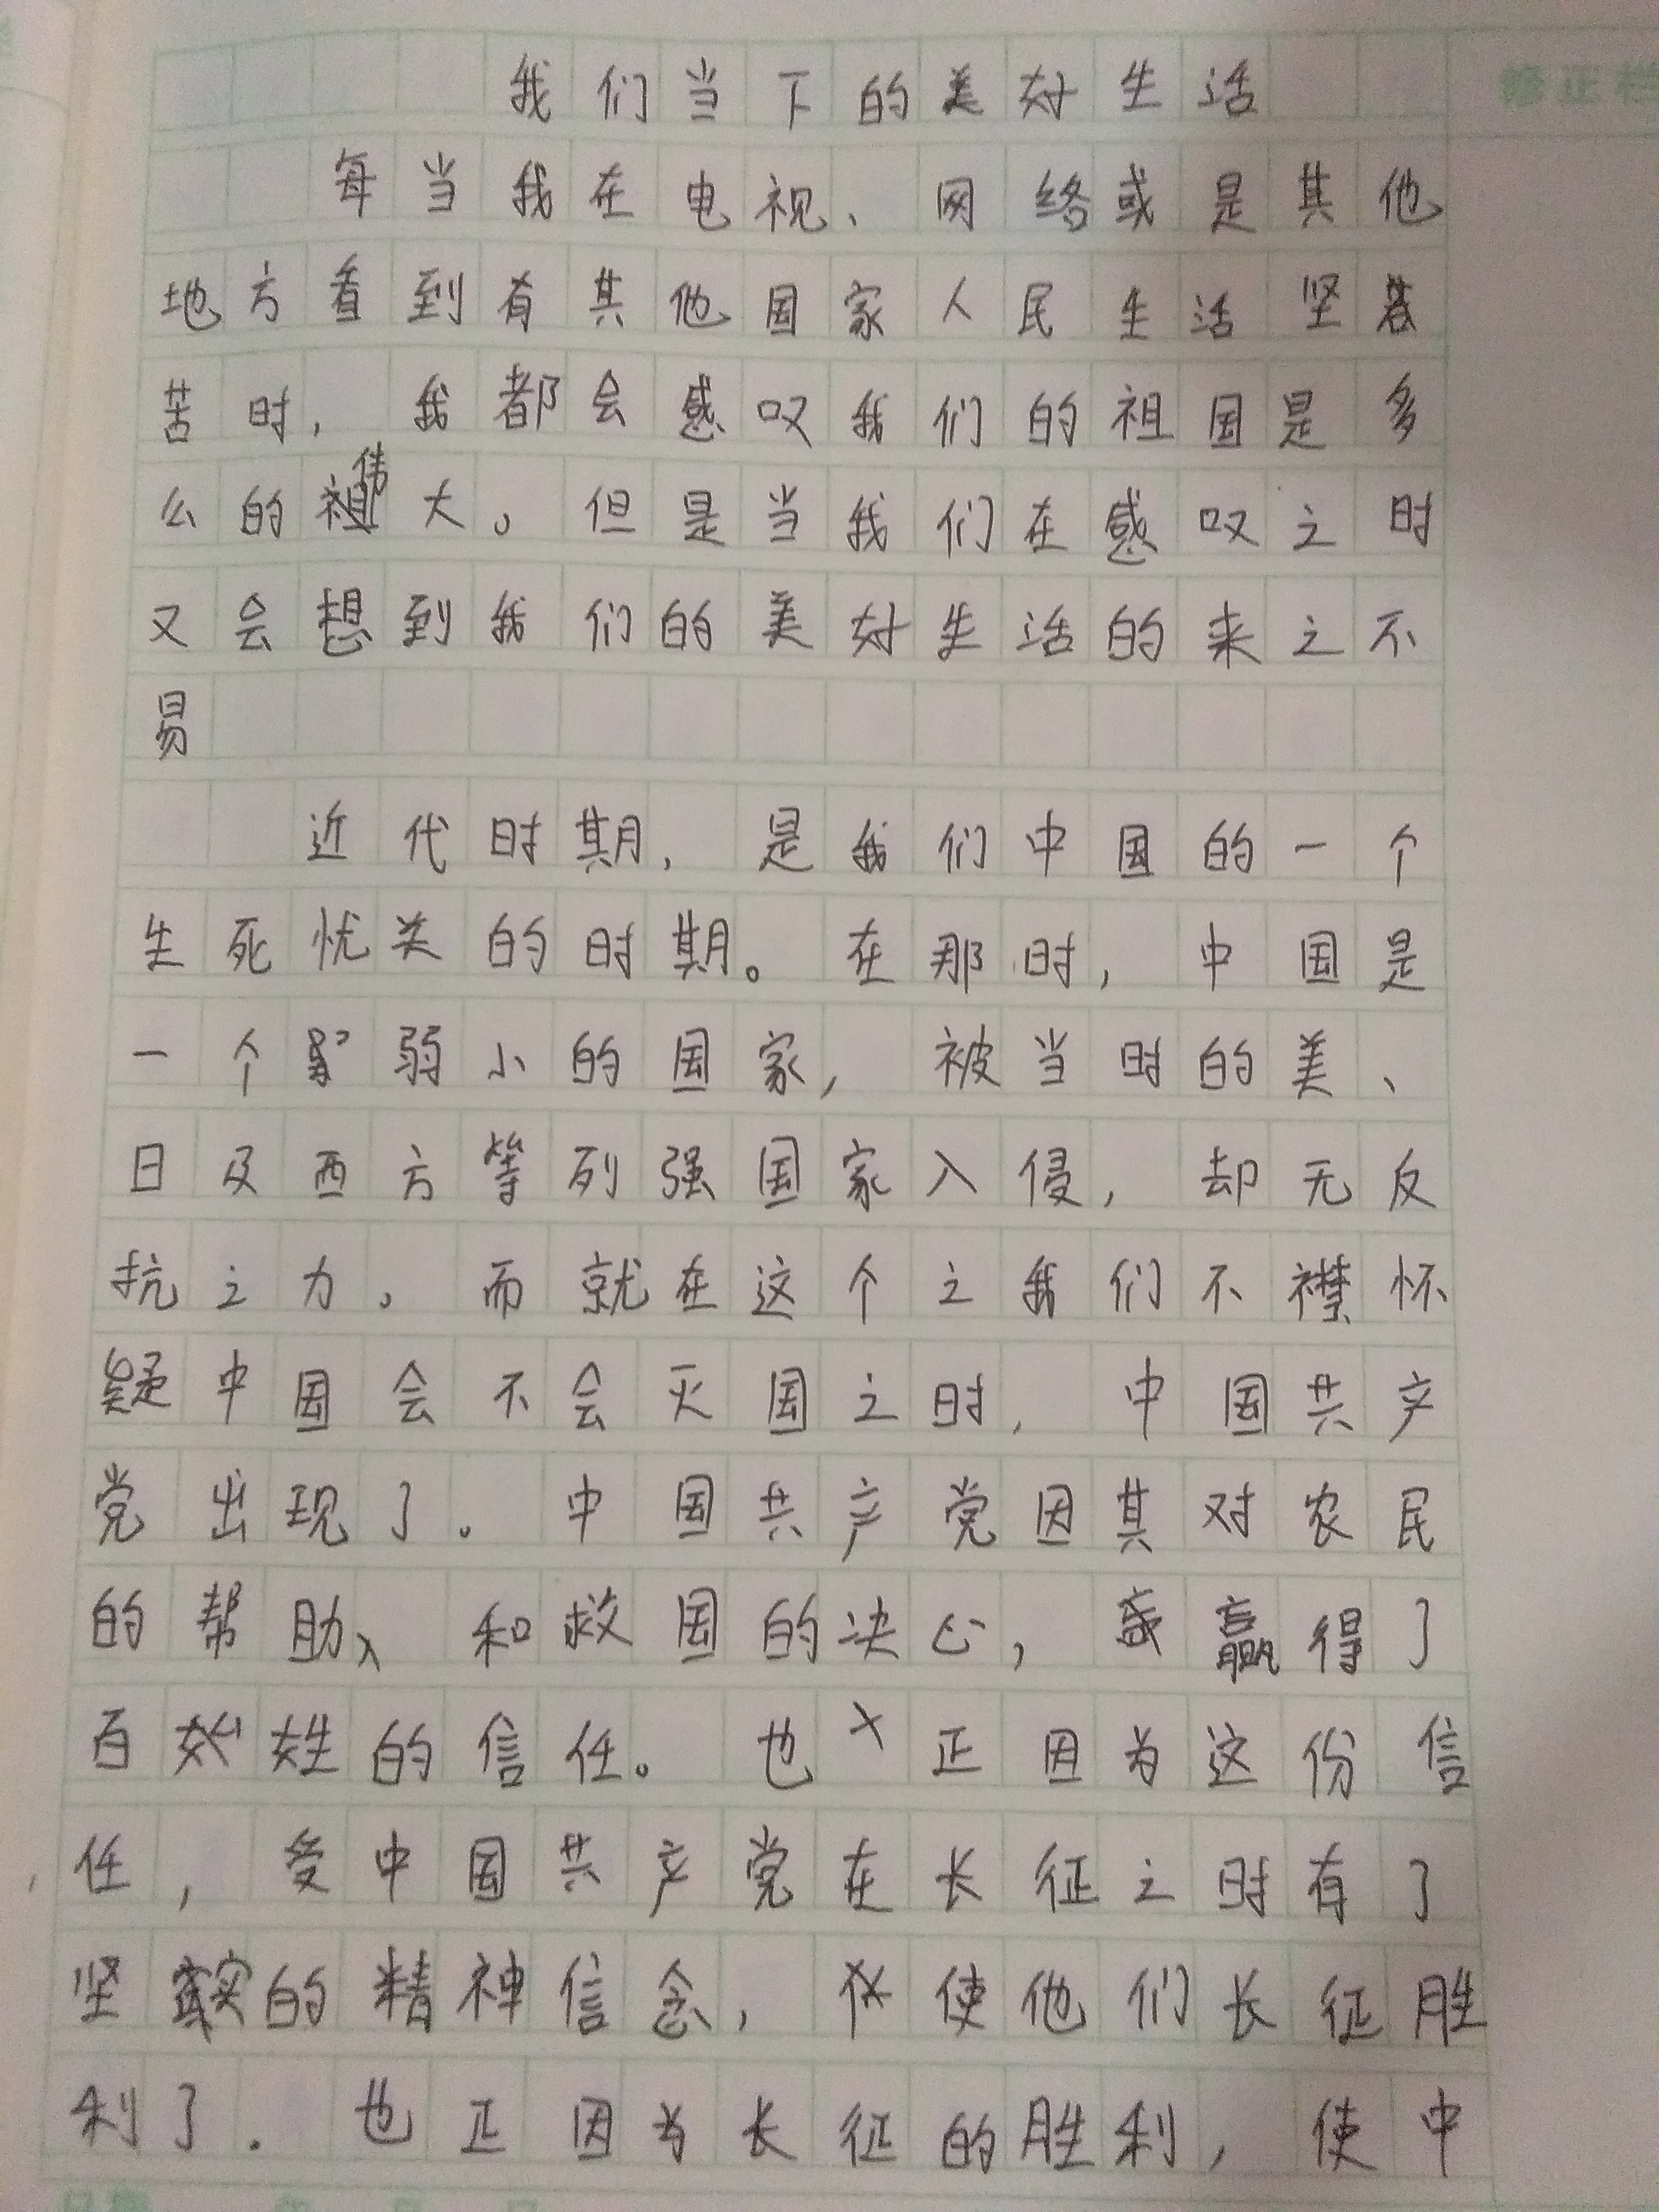 我们当下的美好生活
修正栏
每当我在电视、网络或是其他
地方看到有其他国家人民生活坚
苦时，我都会感叹我们的祖国是多
么的伟大。但是当我们在感叹之时
又会想到我们的美好生活的来之不
易
近代时期，是我们中国的一个
生死忧关的时期。在那时，中国是
一个弱小的国家，被当时的美、
日及西方等列强国家入侵，却无反
抗之力。而就在这个之我们不襟怀
疑中国会不会灭国之时，中国共产
党出现了。中国共产党因其对农民
的帮助、和救国的决心，赢得了
百姓的信任。也正因为这份信
任，受中国共产党在长征之时有了
坚实的精神信念，使他们长征胜
利了．也正因为长征的胜利，使中